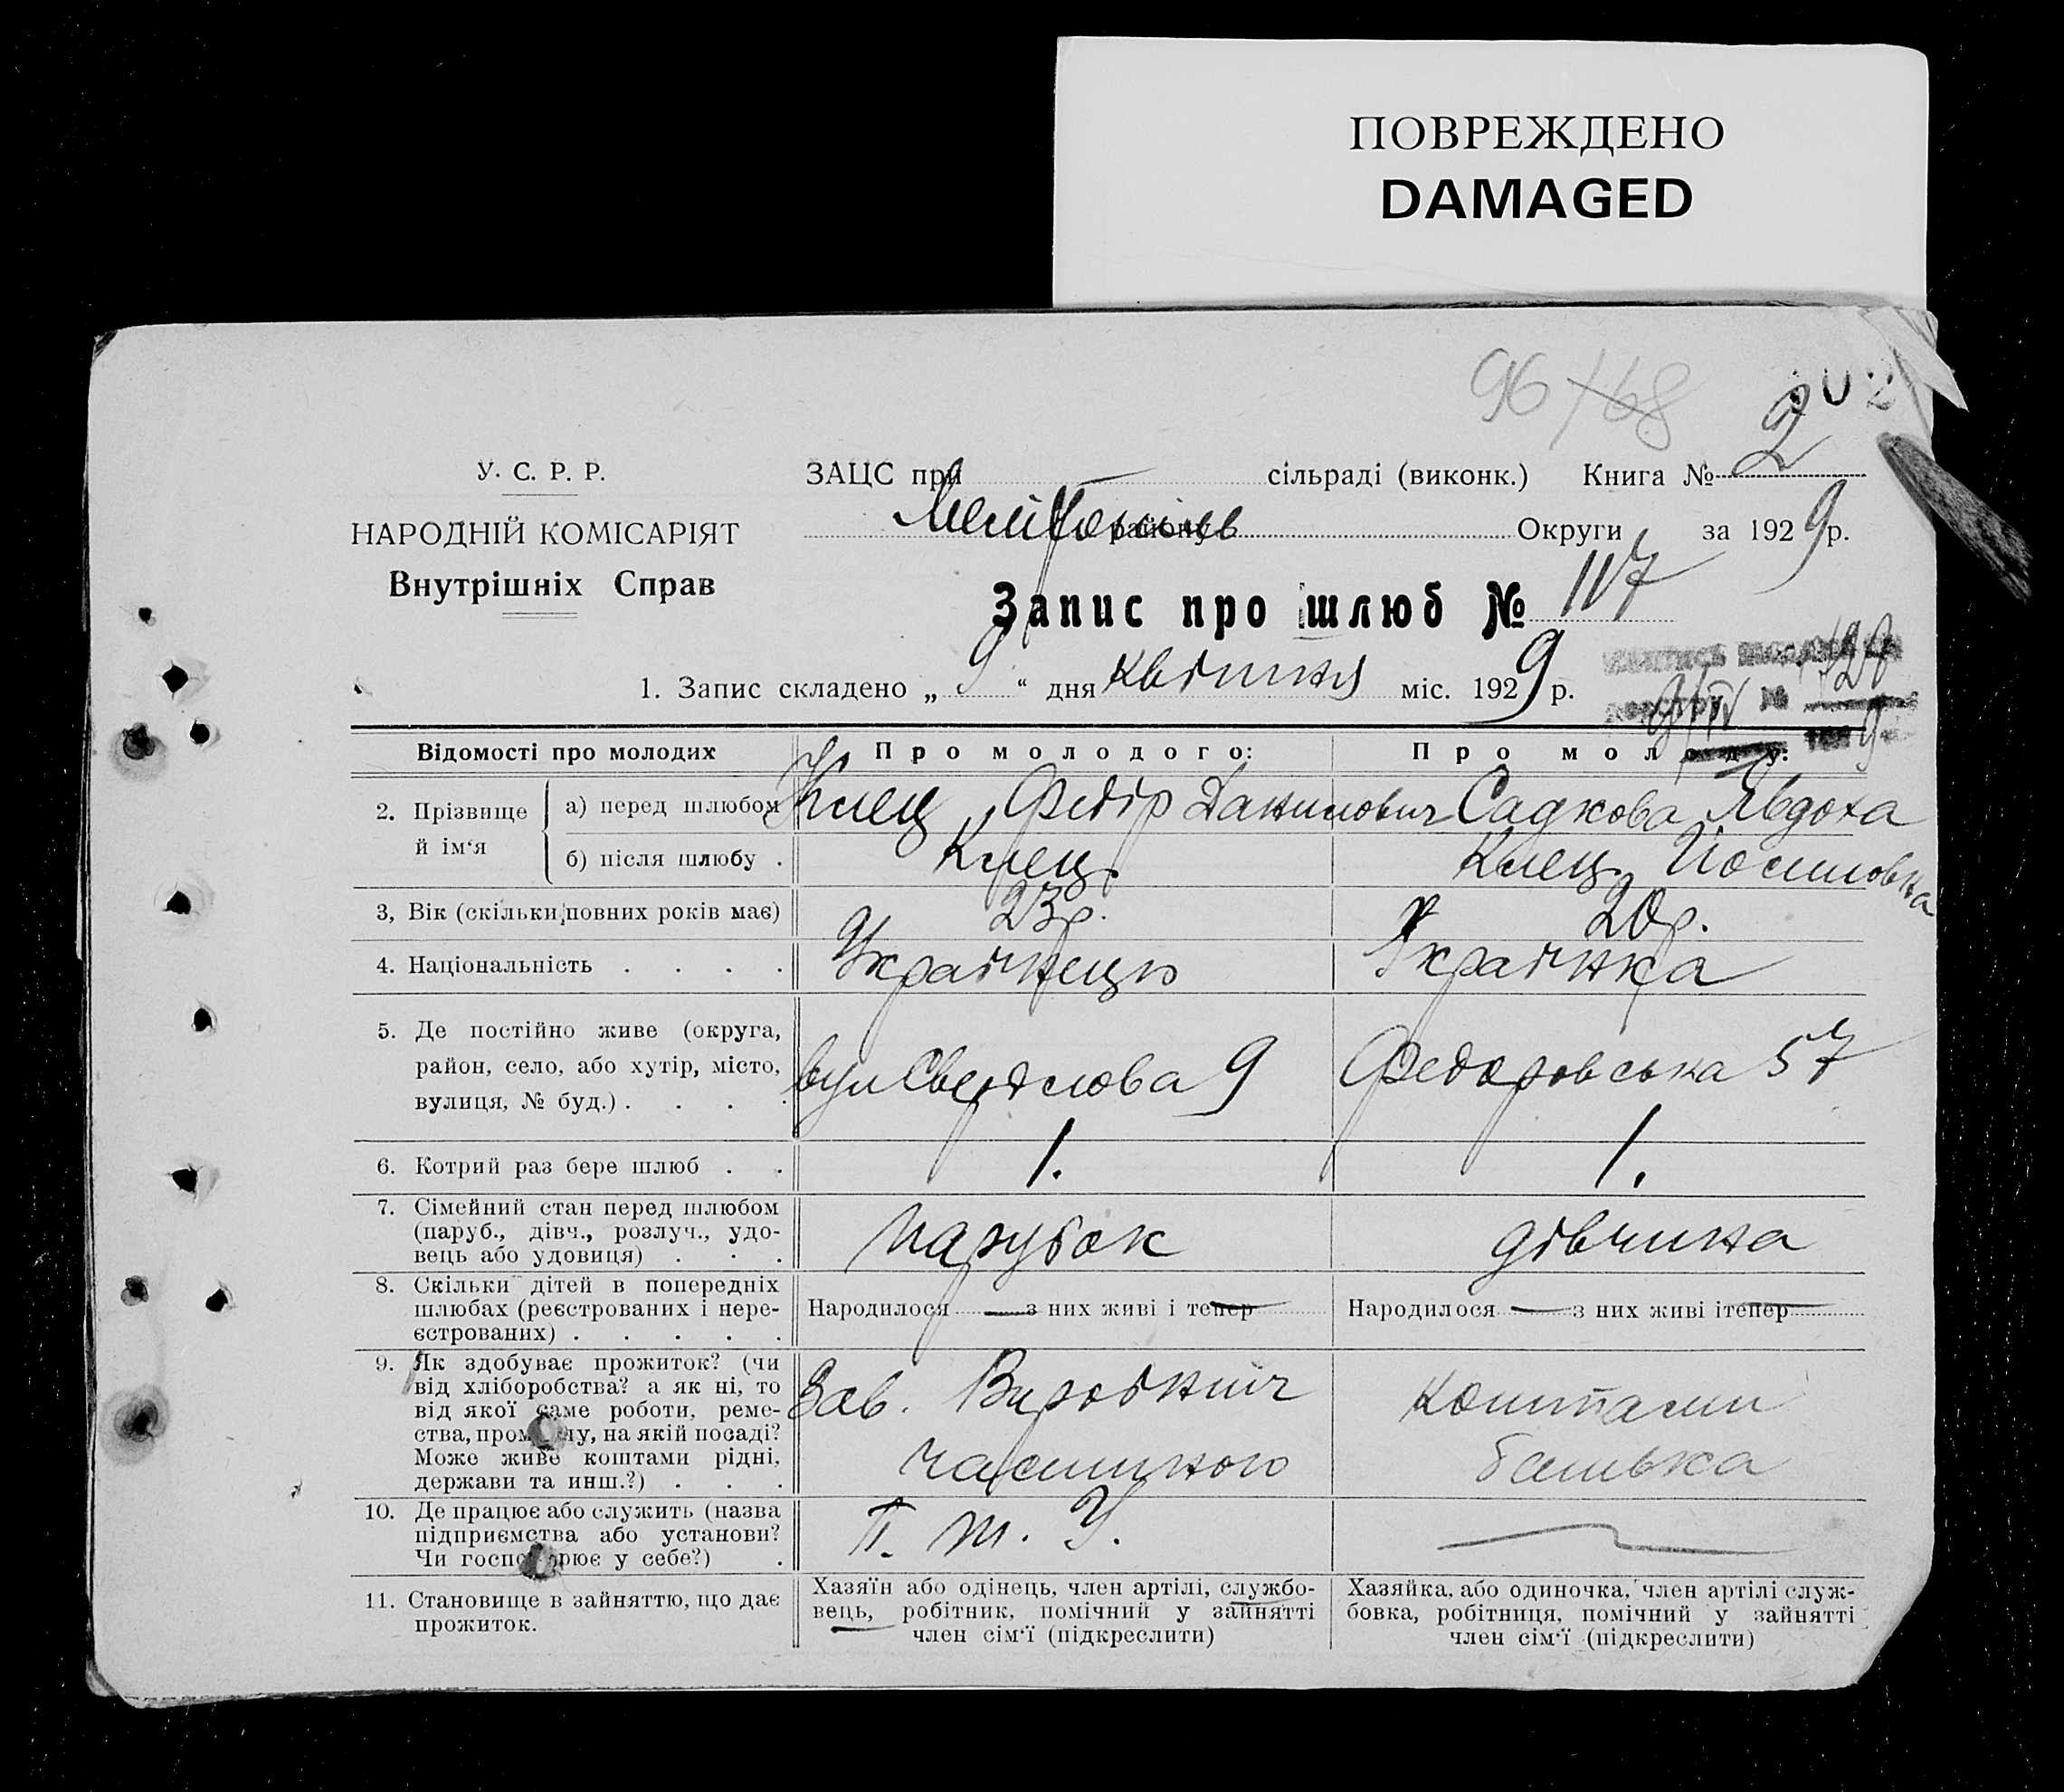 ПОВРЕЖДЕНО
DAMAGED
96/68
2
У. С. Р. Р.
НАРОДНІЙ КОМІСАРІЯТ
Внутрішніх Справ
ЗАЦС при сільраді (виконк.) Книга № 2
району Округи за 1929 р.
Запис про шлюб № 117
1. Запис складено „ 9 “ дня квітня міс. 1929 р.
120
9/IV №
9
Відомості про молодих
Про молодого:
Про молоду:
2. Прізвище й ім‘я
а) перед шлюбом
Клец, Федір Данилович
Садкова Явдоха
Йосиповна
б) після шлюбу .
Клец.
Клец.
3, Вік (скільки повних років має)
23 р.
20 р.
4. Національність . . . .
Українець
Українка
5. Де постійно живе (округа,
район, село, або хутір, місто,
вулиця, № буд.) . . . .
вул Свердлова 9
Федоровська 57
6. Котрий раз бере шлюб . .
1.
1.
7. Сімейний стан перед шлюбом
(паруб., дівч., розлуч., удо-
вець або удовиця) . . .
парубок
дівчина
8. Скільки дітей в попередніх
шлюбах (реєстрованих і нере-
єстрованих) . . . . .
Народилося — з них живі і тепер —
Народилося — з них живі ітепер —
9. Як здобуває прожиток? (чи
від хліборобства? а як ні, то
від якої саме роботи, реме-
ства, промислу, на якій посаді?
Може живе коштами рідні,
держави та инш.?) . . .
Зав. Виробнич
частиною
коштами
батька
10. Де працює або служить (назва
підприємства або установи?
Чи господарює у себе?) .
П. т. У.
—
11. Становище в зайняттю, що дає
прожиток.
Хазяїн або одінець, член артілі, службо-
вець, робітник, помічний у зайнятті
член сім‘ї (підкреслити)
Хазяйка, або одиночка, член артілі служ-
бовка, робітниця, помічний у зайнятті
член сім‘ї (підкреслити)